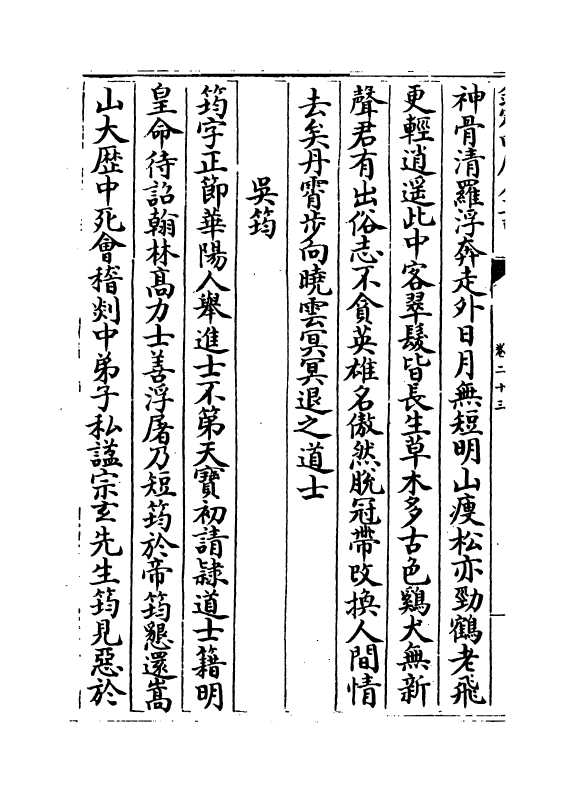 卷二十三
神骨清羅浮奔走外日月無短明山瘦松亦勁鶴老飛
更輕逍遥此中客翠髪皆長生草木多古色鷄犬無新
聲君有出俗志不貪英雄名傲然脫冠帶改換人間情
去矣丹霄步向曉雲冥冥退之道士
吳筠
筠字正節華陽人舉進士不第天寶初請隸道士籍明
皇命待詔翰林髙力士善浮屠乃短筠於帝筠懇還嵩
山大歴中死會稽剡中弟子私諡宗玄先生筠見惡於